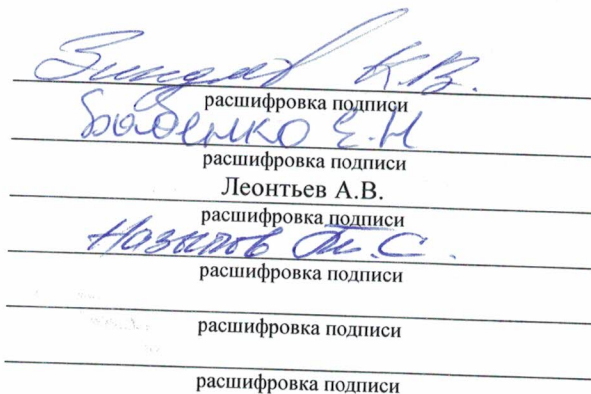 К.В.
расшифровка подписи
Бабенко Е.Н
расшифровка подписи
Леонтьев А.В.
расшифровка подписи
Назыпов Т.С.
расшифровка подписи
расшифровка подписи
расшифровка подписи